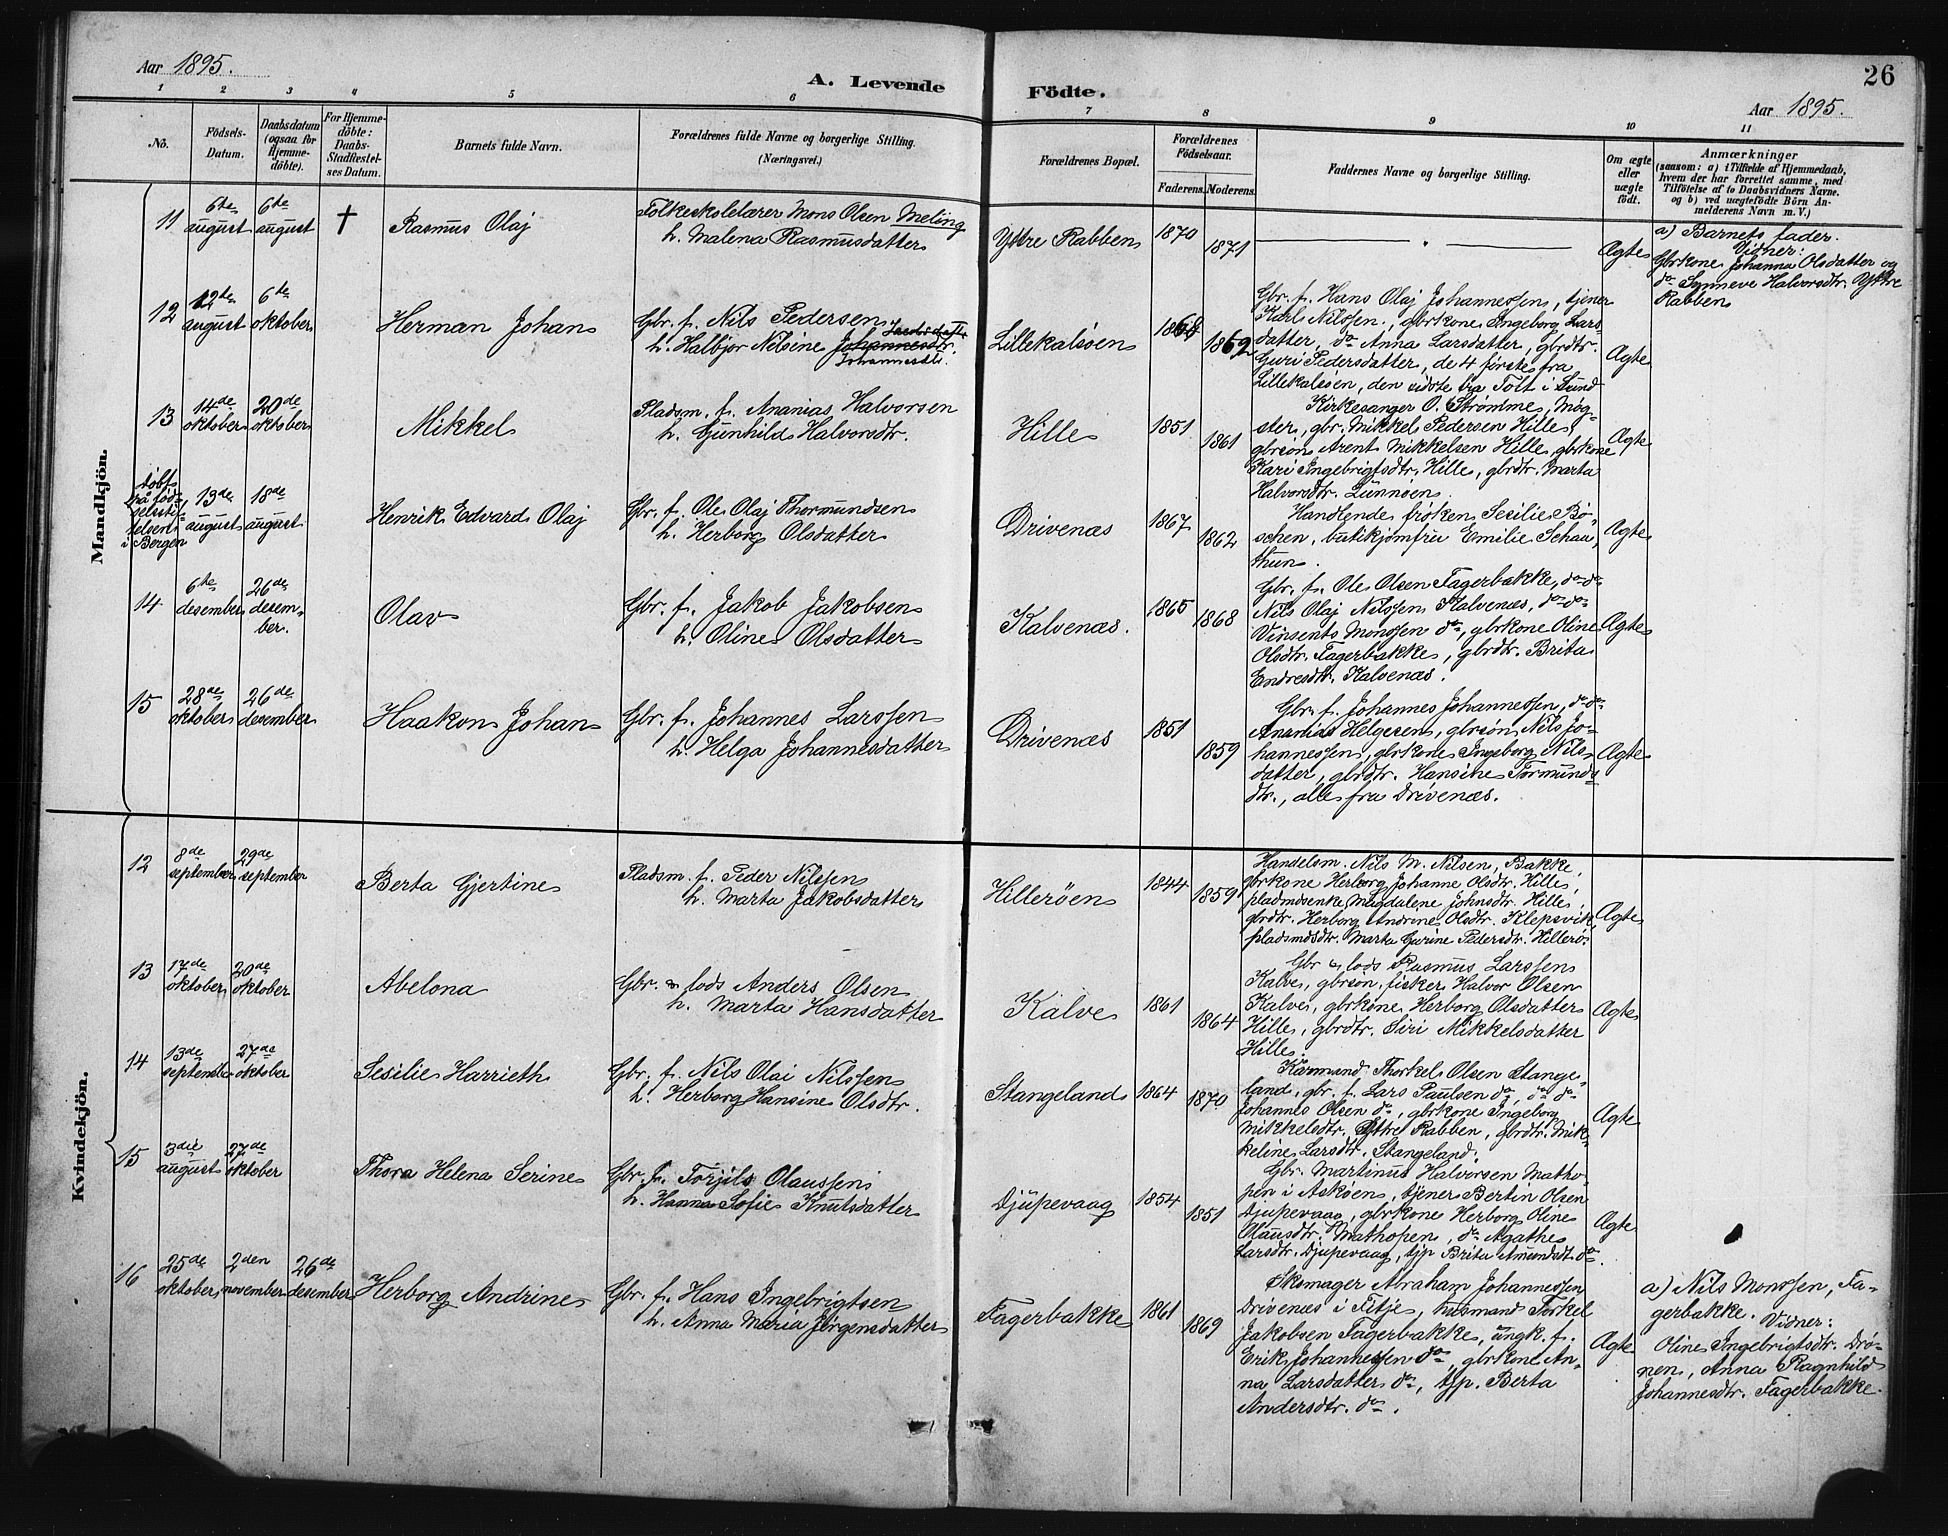 Aar 1895.
A. Levende Födte.
26
Aar 1895.
1 2 3 4 5 6 7 8 9 10 11
No.
Födsels-
Datum.
Daabsdatum
(ogsaa for
Hjemme-
döbte).
For Hjemme-
döbte:
Daabs-
Stadfæstel-
ses Datum.
Barnets fulde Navn.
Forældrenes fulde Navne og borgerlige Stilling.
(Næringsvei.)
Forældrenes Bopæl.
Forældrenes
Födselsaar.
Faderens. Moderens.
Faddernes Navne og borgerlige Stilling.
Om ægte
eller
uægte
födt.
Anmærkninger
(saasom: a) i Tilfælde af Hjemmedaab,
hvem der har forrettet samme, med
Tilföielse af to Daabsvidners Navne.
og b) ved uægtefödte Börn An-
melderens Navn m. V.)
Mandkjön.
11
6te
august
6te
august
†
Rasmus Olaj
Folkeskolelærer Mons Olsen Meling
h. Malena Rasmusdatter
Yttre Rabben
1870
1871
"
Ægte
a) Barnets fader.
Vidner:
Gbrkone Johanna Olsdatter og
do Synneve Halvorsdtr. Yttre
Rabben
12
12te
august
6te
oktober
Herman Johan
Gbr. f. Nils Pedersen
h. Halbjor Nilsene Johannesdtr.
Johannesdtr.
Lillekalsöen
1862
Gbr. f. Hans Olaj Johannessen, tjener
Karl Nilssen, gbrkone Ingeborg Lars-
datter, do Anna Larsdatter, gbrdtr.
Guri Pedersdatter, de 4 förste fra
Lillekalsöen, den sidste fra Tolt i Sund
Ægte
13
14de
oktober
20de
oktober
Mikkel
Pladsm. f. Ananias Halvorsen
h. Gunhild Halvorsdtr.
Hille
1851
1861
Kirkesanger O. Strömme, Møg-
ster, gbr. Mikkel Pedersen Hille,
gbrsön Arent Mikkelsen Hille, gbrkone
Kari Ingebrigtsdtr. Hille, gbrdtr. Marta
Halvorsdtr. Lunnöen.
Ægte
Döbt
på föd-
selssti-
telsen
i Bergen
13de
august
18de
august
Henrik Edvard Olaj
Gbr. f. Ole Olaj Thormundsen
h. Herborg Olsdatter
Drivenæs
1867
1862
Handlende fröken Secilie Bö-
schen, butikjomfru Emilie Schau,
thun.
Ægte
14
6te
desember
26de
desem-
ber.
Olav
Gbr. f. Jakob Jakobsen
h. Oline Olsdatter
Kalvenæs.
1865
1868
Gbr. f. Ole Olsen Fagerbakke, do do
Nils Olaj Nilssen Kalvenæs, do do
Vinsents Monssen do, gbrkone Oline
Olsdtr. Fagerbakke, gbrdtr. Brita
Endresdtr. Kalvenæs.
Ægte
15
28de
oktober
26de
desember
Haakon Johan
Gbr. f. Johannes Larssen
h. Helga Johannesdatter
Drivenæs
1851
1859
Gbr. f. Johannes Johannessen, do do
Ananias Helgesen, gbrsön Nils Jo-
hannessen, gbrkone Ingeborg Nils-
datter, gbrdtr. Hansine Tormunds-
dtr., alle fra Drivenæs.
Ægte
Kvindekjön.
12
8de
september
29de
september
Berta Gjertine
Pladsm. f. Peder Nilssen
h. Marta Jakobsdatter
Hilleröen
1844
1859
Handelsm. Nils M. Nilsen, Bakke,
gbrkone Herborg Johanne Olsdtr. Hille,
pladsmdsenke Magdalene Johnsdtr. Hille,
gbrdtr. Herborg Andrine Olsdtr. Klepsvik,
pladsmdsdtr. Marta Gurine Pedersdtr. Hillerö
Ægte
13
17de
oktober
20de
oktober
Abelona
Gbr. & lods Anders Olsen
h. Marta Hansdatter
Kalve
1861
1864
Gbr & lods Rasmus Larssen
Kalve, gbrsön, fisker Halvor Olsen
Kalve, gbrkone Herborg Olsdatter
Hille, gbrdtr. Siri Mikkelsdatter
Hille.
Ægte
14
13de
september
27de
oktober
Sesilie Harrieth
Gbr. f. Nils Olai Nilssen
h. Herborg Hansine Olsdtr.
Stangeland
1864
1870
Kårmand Thorkel Olsen Stange-
land, gbr. f. Lars Paulsen do, do do
Johannes Olsen do, gbrkone Ingeborg
Mikkelsdtr. Yttre Rabben, gbrdtr. Mik-
keline Larsdtr. Stangeland.
Ægte
15
3die
august
27de
oktober
Thora Helena Serine
Gbr. f. Torjils Olaussen
h. Hanna Sofie Knutsdatter
Djupevaag
1854
1851
Gbr. Martinus Halvorsen Matho-
pen i Asköen, tjener Bertin Olsen
Djupevaag, gbrkone Herborg Oline
Olausdtr. Mathopen, do Agathe
Larsdtr. Djupevaag, tjp Brita Amundsdt. do.
Ægte
16
25de
oktober
2den
november
26de
desember
Herborg Andrine
Gbr. f. Hans Ingebrigtsen
h. Anna Maria Jörgensdatter
Fagerbakke
1861
1869
Skomager Abraham Johannessen
Drivenæs i Fitje, husmand Torkel
Jakobsen Fagerbakke, ungk. f.
Erik Johannessen do, gbrkone An-
na Larsdatter do, tjp. Berta
Andersdtr. do.
Ægte
a) Nils Monssen, Fa-
gerbakke. Vidner:
Oline Ingebrigtsdtr. Drö-
nen, Anna Ragnhild
Johannesdtr. Fagerbakke.